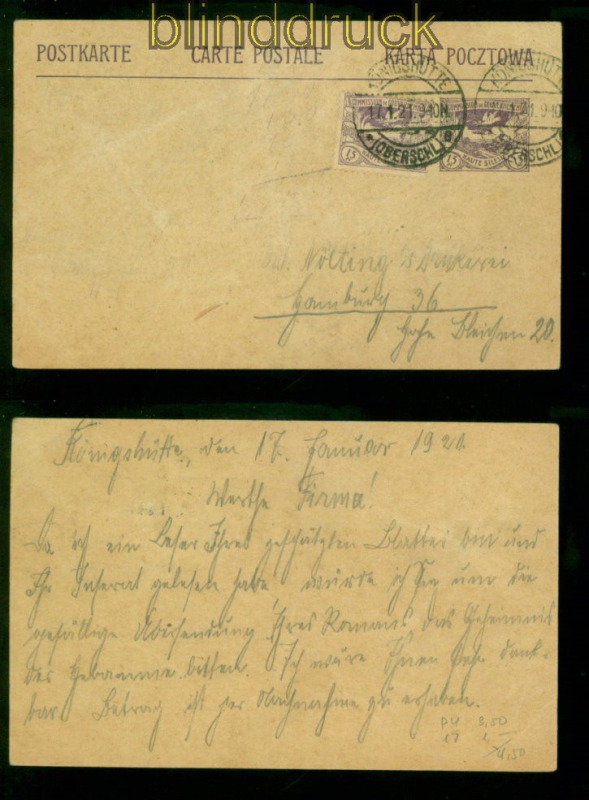 blinddruck
POSTKARTE CARTE POSTALE KARTA POCZTOWA
KÖNIGSHÜTTE KÖNIGSHÜTTE
17.1.21.9-10N. 9-10N
*(OBERSCHL.) a (OBERSCHL.)
15 HAUTE SILÉSIE 15 15 HAUTE SILÉSIE 15
Nölting's Druckerei
Hamburg 36
Hohe Bleichen 20.
Königshütte, den 17. Januar 1921
Werthe Firma!
Da ich ein Leser Ihres geschätzten Blattes bin und
Ihr Inserat gelesen habe würde ich Sie um die
gefällige Übersendung Ihres Romans das Geheimnis
der Hebamme bitten. Ich wäre Ihnen sehr dank-
bar. Betrag ist per Nachnahme zu erheben.
P4 3,50